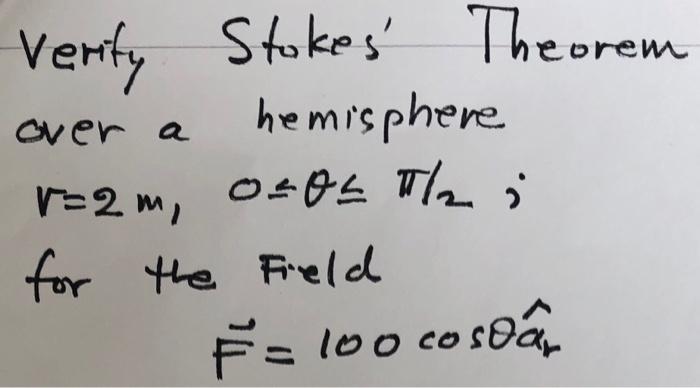 Verify Stokes' Theorem
over a hemisphere
r=2 m, 0≤θ≤ π/2 ;
for the Field
F⃗ = 100 cosθ â_r